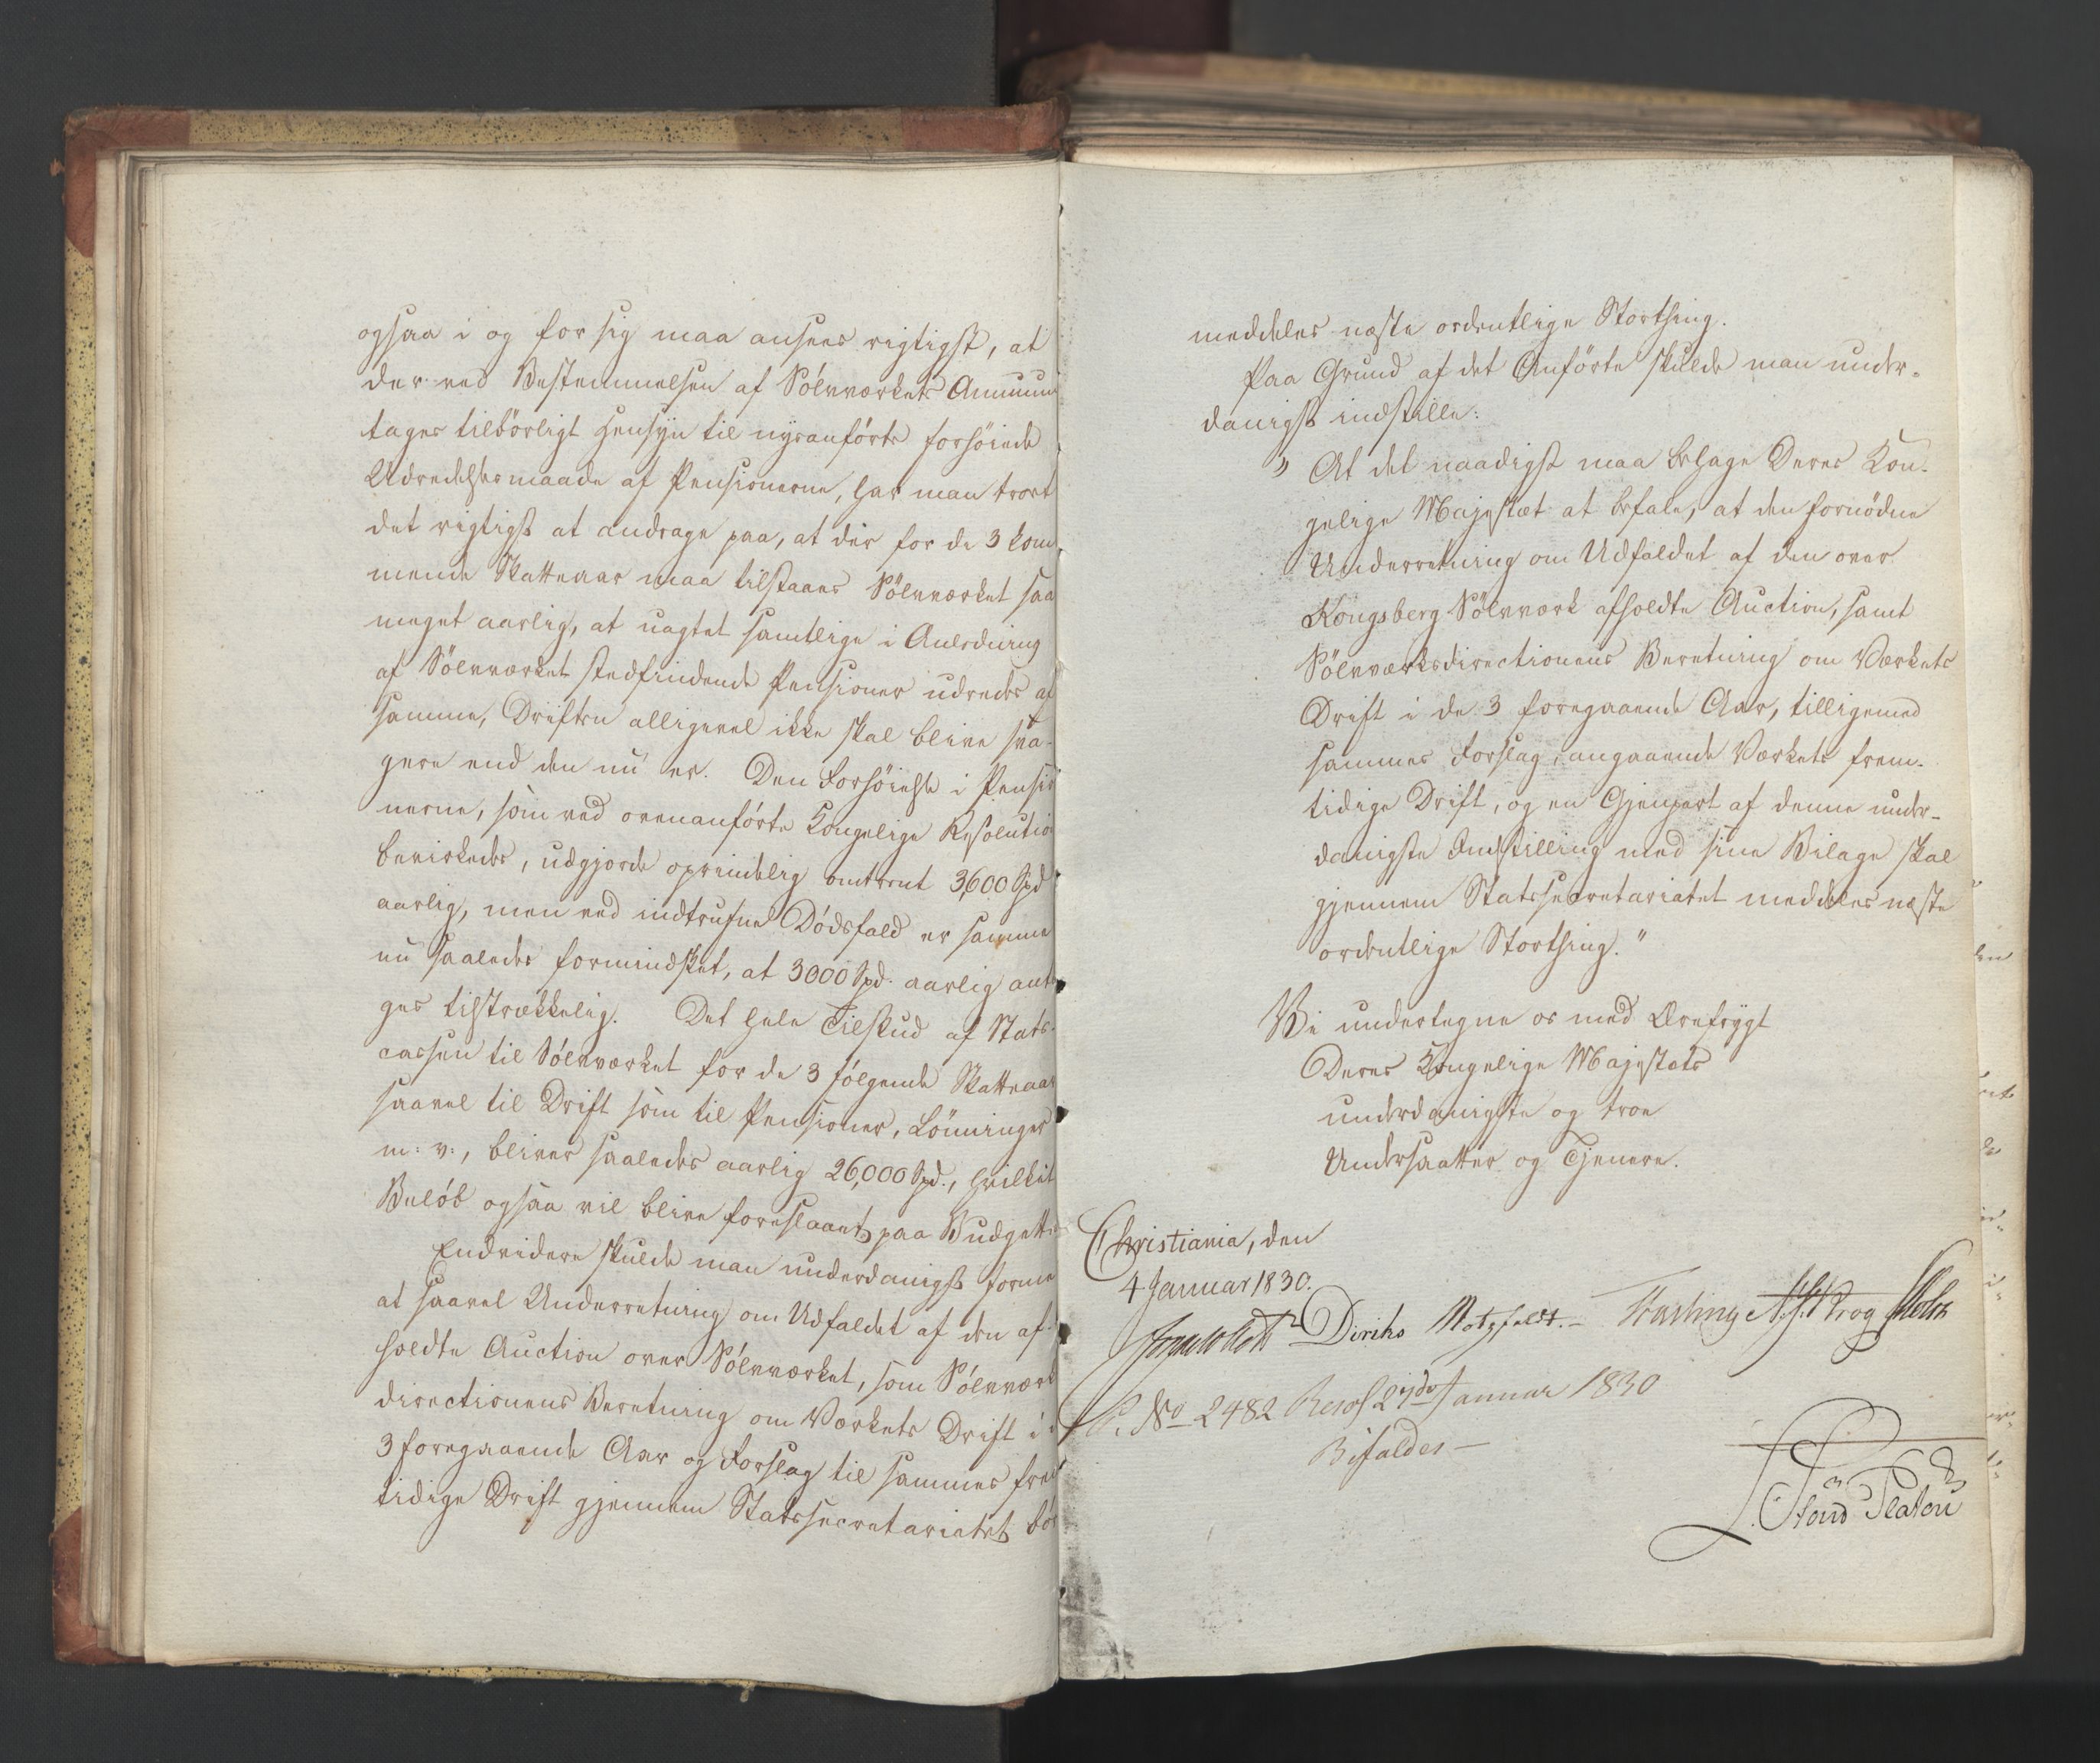 ogsaa i og for sig maa ansees rigtigst, at
der ved Bestemmelsen af Sölvværkets Annuum
tages tilbörligt Hensyn til nysanförte forhöiede
Udredelsesmaade af Pensionerne, har man troet
det rigtigst at andrage paa, at der for de 3 kom¬
mende Skatteaar maa tilstaaes Sölvværket saa
meget aarlig, at uagtet samtlige i Anledning
af Sölvværket stedfindende Pensioner udredes af
samme, Driften alligevel ikke skal blive sva¬
gere end den nu er. Den Forhöielse i Pensio
nerne, som ved ovenanförte Kongelige Resolution
bevirkedes, udgjorde oprindelig omtrent 3,600 Spd
aarlig, men ved indtrufne Dödsfald er samme
nu saaledes formindsket, at 3000 Spd. aarlig anta
ges tilstrækkelig. Det hele Tilskud af Stats¬
cassen til Sölvværket for de 3 fölgende Skatteaar
saavel til Drift som til Pensioner, Lönninger
m: v:, bliver saaledes aarlig 26,000 Spd., hvilket
Belöb ogsaa vil blive foreslaaet paa Budgettet.
Endvidere skulde man underdanigst formene
at saavel Underretning om Udfaldet af den af¬
holdte Auction over Sölvværket, som Sölvværks
directionens Beretning om Værkets Drift i de
3 foregaaende Aar og Forslag til sammes frem
tidige Drift gjennem Statssecretariatet bör
meddeles næste ordentlige Storthing.
Paa Grund af det Anförte skulde man under¬
danigst indstille:
" At det naadigst maa behage Deres Kon¬
gelige Majestæt at befale, at den fornödne
Underretning om Udfaldet af den over
Kongsberg Sölvværk afholdte Auction, samt
Sölvværksdirectionens Beretning om Værkets
Drift i de 3 foregaaende Aar, tilligemed
sammes Forslag, angaaende Værkets frem¬
tidige Drift, og en Gjenpart af denne under¬
danigste Indstilling med sine Bilage skal
gjennem Statssecretariatet meddeles næste
ordentlige Storthing."
Vi undertegne os med Ærefrygt
Deres Kongelige Majestæts
underdanigste og troe
Undersaatter og Tjenere.
Christiania, den
4 Januar 1830.
Jonas Collett Diriks Motzfeldt. Fasting Krog Holst
P. No 2482 Resol 27de Januar 1830
Bifaldes
Platou